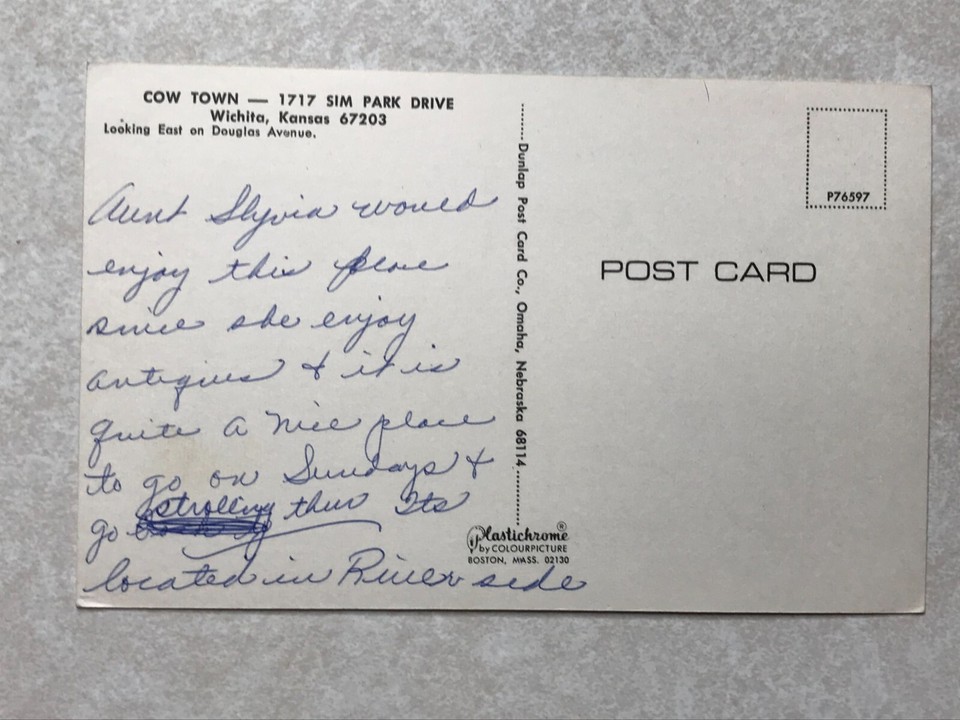 COW TOWN — 1717 SIM PARK DRIVE
Wichita, Kansas 67203
Looking East on Douglas Avenue.
Aunt Slyvia would
enjoy this place
since she enjoy
antiques & it is
quite a nice place
to go on Sundays &
go strolling thur Its
located in River side
Dunlap Post Card Co., Omaha, Nebraska 68114
Plastichrome®
by COLOURPICTURE
BOSTON, MASS. 02130
P76597
POST CARD